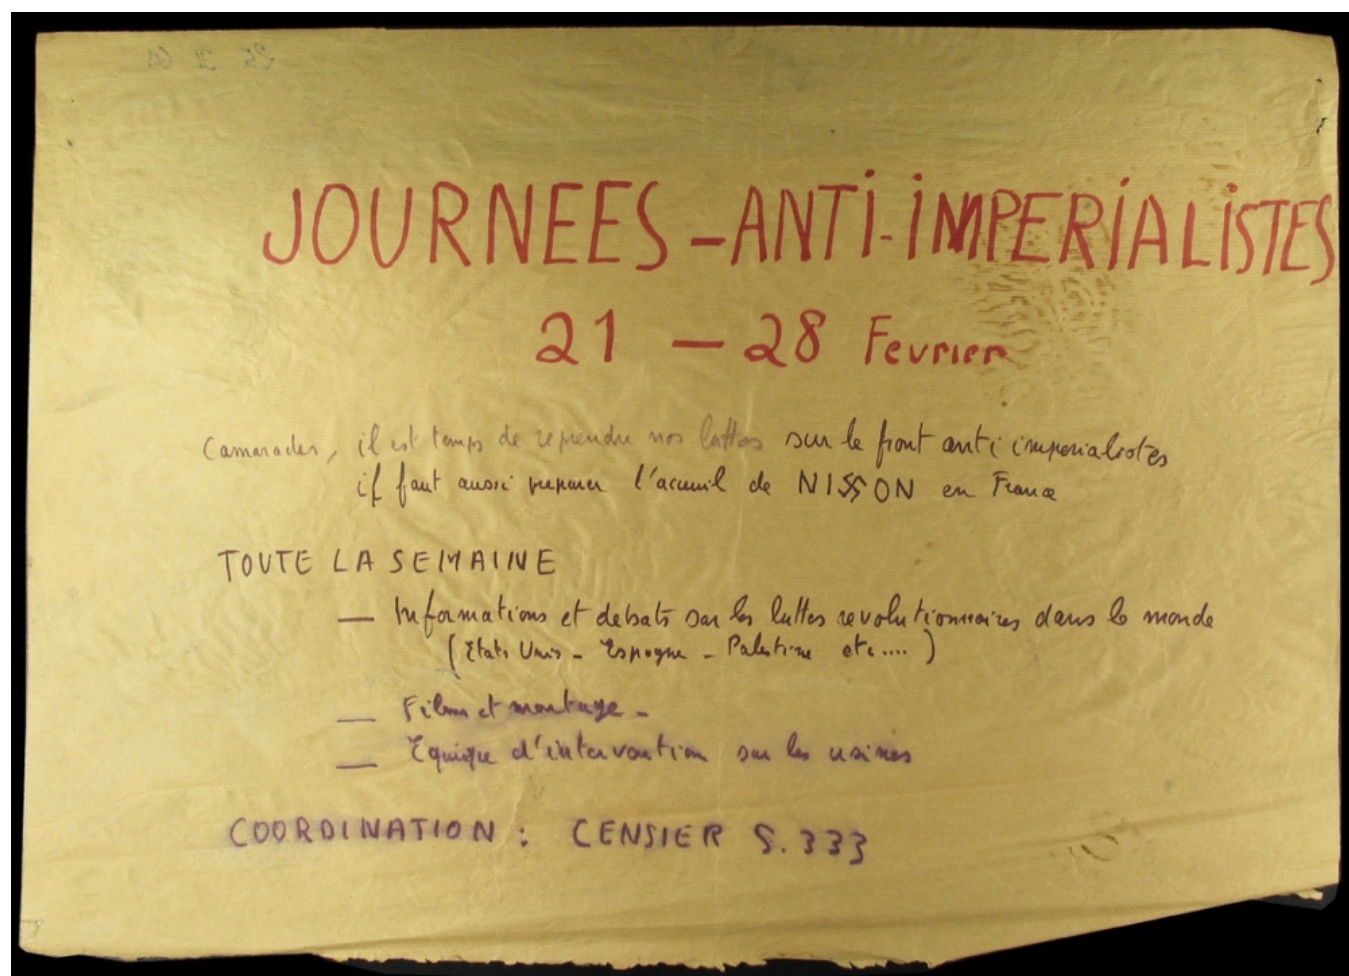 JOURNEES - ANTI-IMPERIALISTES
21 - 28 Fevrier
Camarades, il est temps de reprendre nos luttes sur le front anti imperialistes
il faut aussi preparer l'accueil de NISSON en France
TOUTE LA SEMAINE
— Informations et debats sur les luttes revolutionnaires dans le monde
(Etats Unis - Espagne - Palestine etc....)
— Films et montage -
— Equipe d'intervention sur les usines
COORDINATION : CENSIER S. 333